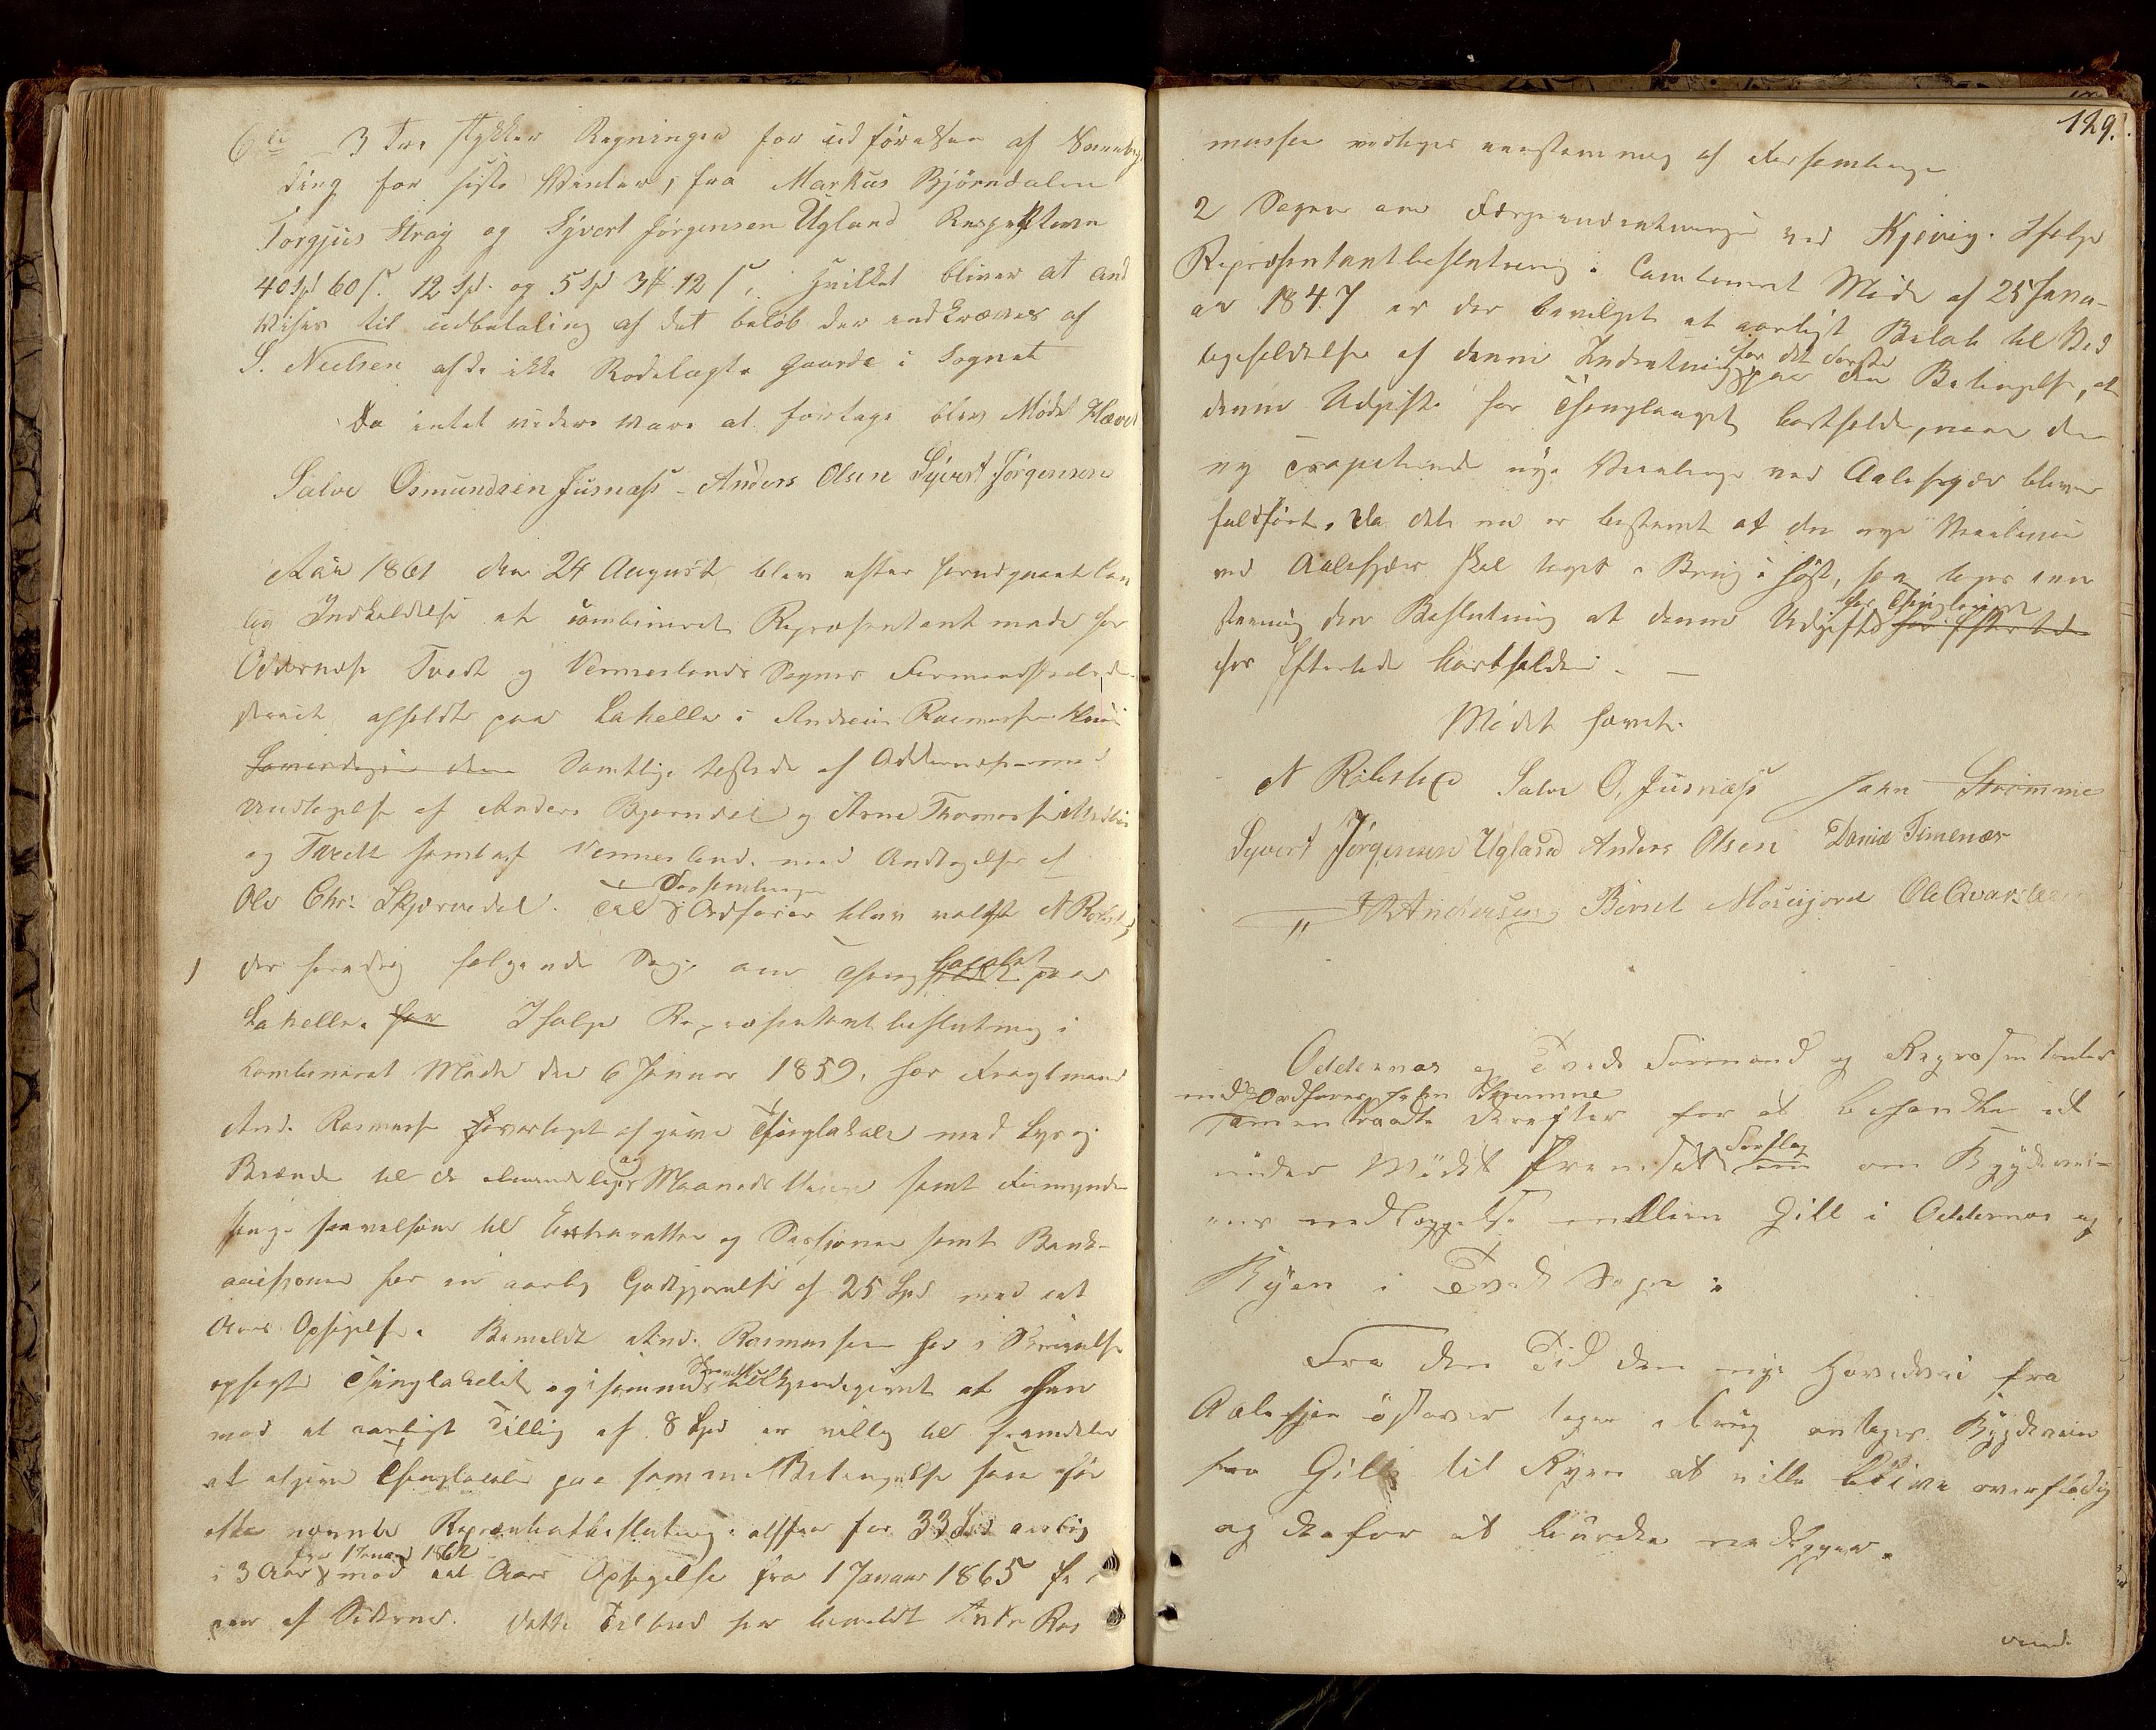 6te 3 Tre stykker Regninger for udførelsen af
ding for siste Vinter, fra Markus Bjørndalen
Torgjus Straj og Syvert Jørgensen Ugland Respektive
40 Spd 60 s. 12 Spd. og 5 Spd 3 # 12 s, hvilket bliver at and
vises til udbetaling af det beløb der indkræves af
S. Nielsen af de ikke Rodelagte gaarde i Sognet
Da intet videre vare at foretage blev Mødet Hævet
Salve Osmundsen Jusnæss - Anders Olsen Syvert Jørgensen
Aar 1861 den 24 August blev efter forudgaaet
lig Indkaldelse et combineret Repræsentant møde for
Oddernæs Tvedt og Vennesland Sogner Formandskabs
afholdt paa Lahelle i Andreas Rasmussens
Samtlige tilstede af Oddernæs med
Undtagelse af Anders Bjørndal og Arne Thomassen
og Tvedt samt af Vennesland med Undtagelse af
Ole Chr. Skjærvedal. Til Forsamlingens Ordfører blev valgt N Rolstæd
1 der foredrog følgende Sag: om Thinglocalet paa
Lahelle. for Ifølge Repræsentantbeslutning i
kombineret Møde den 6 Januar 1859, har Fragtmand
And. Rasmussen overtaget afgive Thinglokale med Lys og
Brænde til de almindelige og Maaneds Thinge samt Formynder
thinge saavelsom til Extraretter og Sessioner samt Bank
auksjoner for en aarlig Godtgjørelse af 25 Spd med et
Aars Opsigelse. Bemeldte And. Rasmussen har i Skrivelse
opsagt Thinglokalet og i samme Skrivelse tilkjendegivet at han
mod et aarligt Tillæg af 8 Spd er villig til fremdeles
at afgive Thinglokale paa samme Betingelse som før
nævnte Repræsentantbeslutning altsaa for 33 Spd aarlig
i 3 Aar fra 1 Januar 1862 mod et Aars Opsigelse fra 1 Januar 1865 fra
en af Siderne. Dette Tilbud fra bemeldte Andr Ras
129.
mussen vedtages eenstemmig af Forsamlingen
2 Sagen om Færgeindretningen ved Kjevig. Ifølge
Repræsentantbeslutning i Combineret Møde af 25 Janu-
ar 1847 er der bevilget et aarligt Beløb til Ved
ligeholdelse af denne Indretning for det første paa den Betingelse, at
denne Udgift for Thinglauget bortfalder, naar den
ny nye Veianlæg ved Aalefjær bliver
fuldført. Da det nu er bestemt at den nye Veilinie
ved Aalefjær skal tages i Brug i høst, saa toges een
stemmig den Beslutning at denne Udgift for Thinglauget for Eftertiden
for Eftertiden bortfalder. -
Mødet hævet.
N Rolstæd Salve O. Jusnæss John Strømme
Syvert Jørgensen Ugland Anders Olsen Daniel Timenæs
Andersen Bernt Moseisjord Ole Qvarsten
Oddernæs og Tveds Formænd og Repræsentanter
med Ordfører John Strømme
samentraadte derefter for at behandle et
under Mødet Fremsat Forslag om om Bygdevei-
ens nedlæggelse mellem Gill i Oddernæs og
Ryen i Tveds Sogn:
Fra den Tid den nye Hovedvei fra
Aalefjær østover tages i brug antages Bygdeveien
fra Gill til Ryen at ville blive overflødig
og derfor at burde nedlægges.
vend.